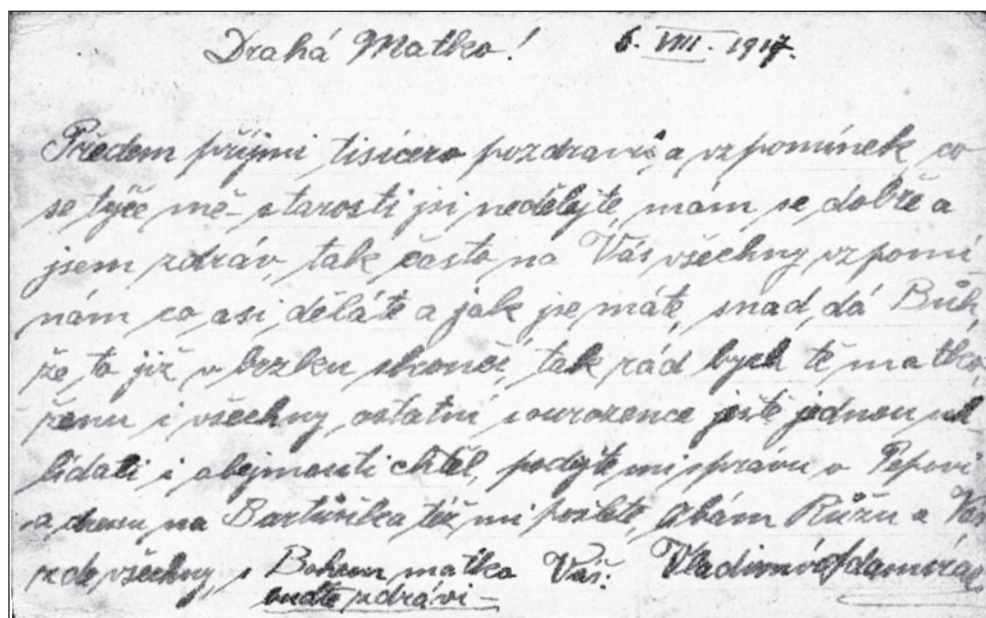 Drahá Matko! 6. VIII. 1917.
Předem přijmi tisícero pozdravů a vzpomínek co
se týče mě - starosti jsi nedělejte, mám se dobře a
jsem zdráv, tak často na Vás všechny vzpomí
nám co asi děláte a jak jse máte, snad dá Bůh,
že to již v brzku skončí, tak rád bych tě matko,
ženu i všechny ostatní sourozence ještě jednou uh
lídati i obejmouti chtěl, podejte mi správu o Pepovi
a dresu na Bartůška též mi pošlete, líbám Růžu a Vás
zde všechny, s Bohem matko Váš: Vladimír
buďte zdrávi -